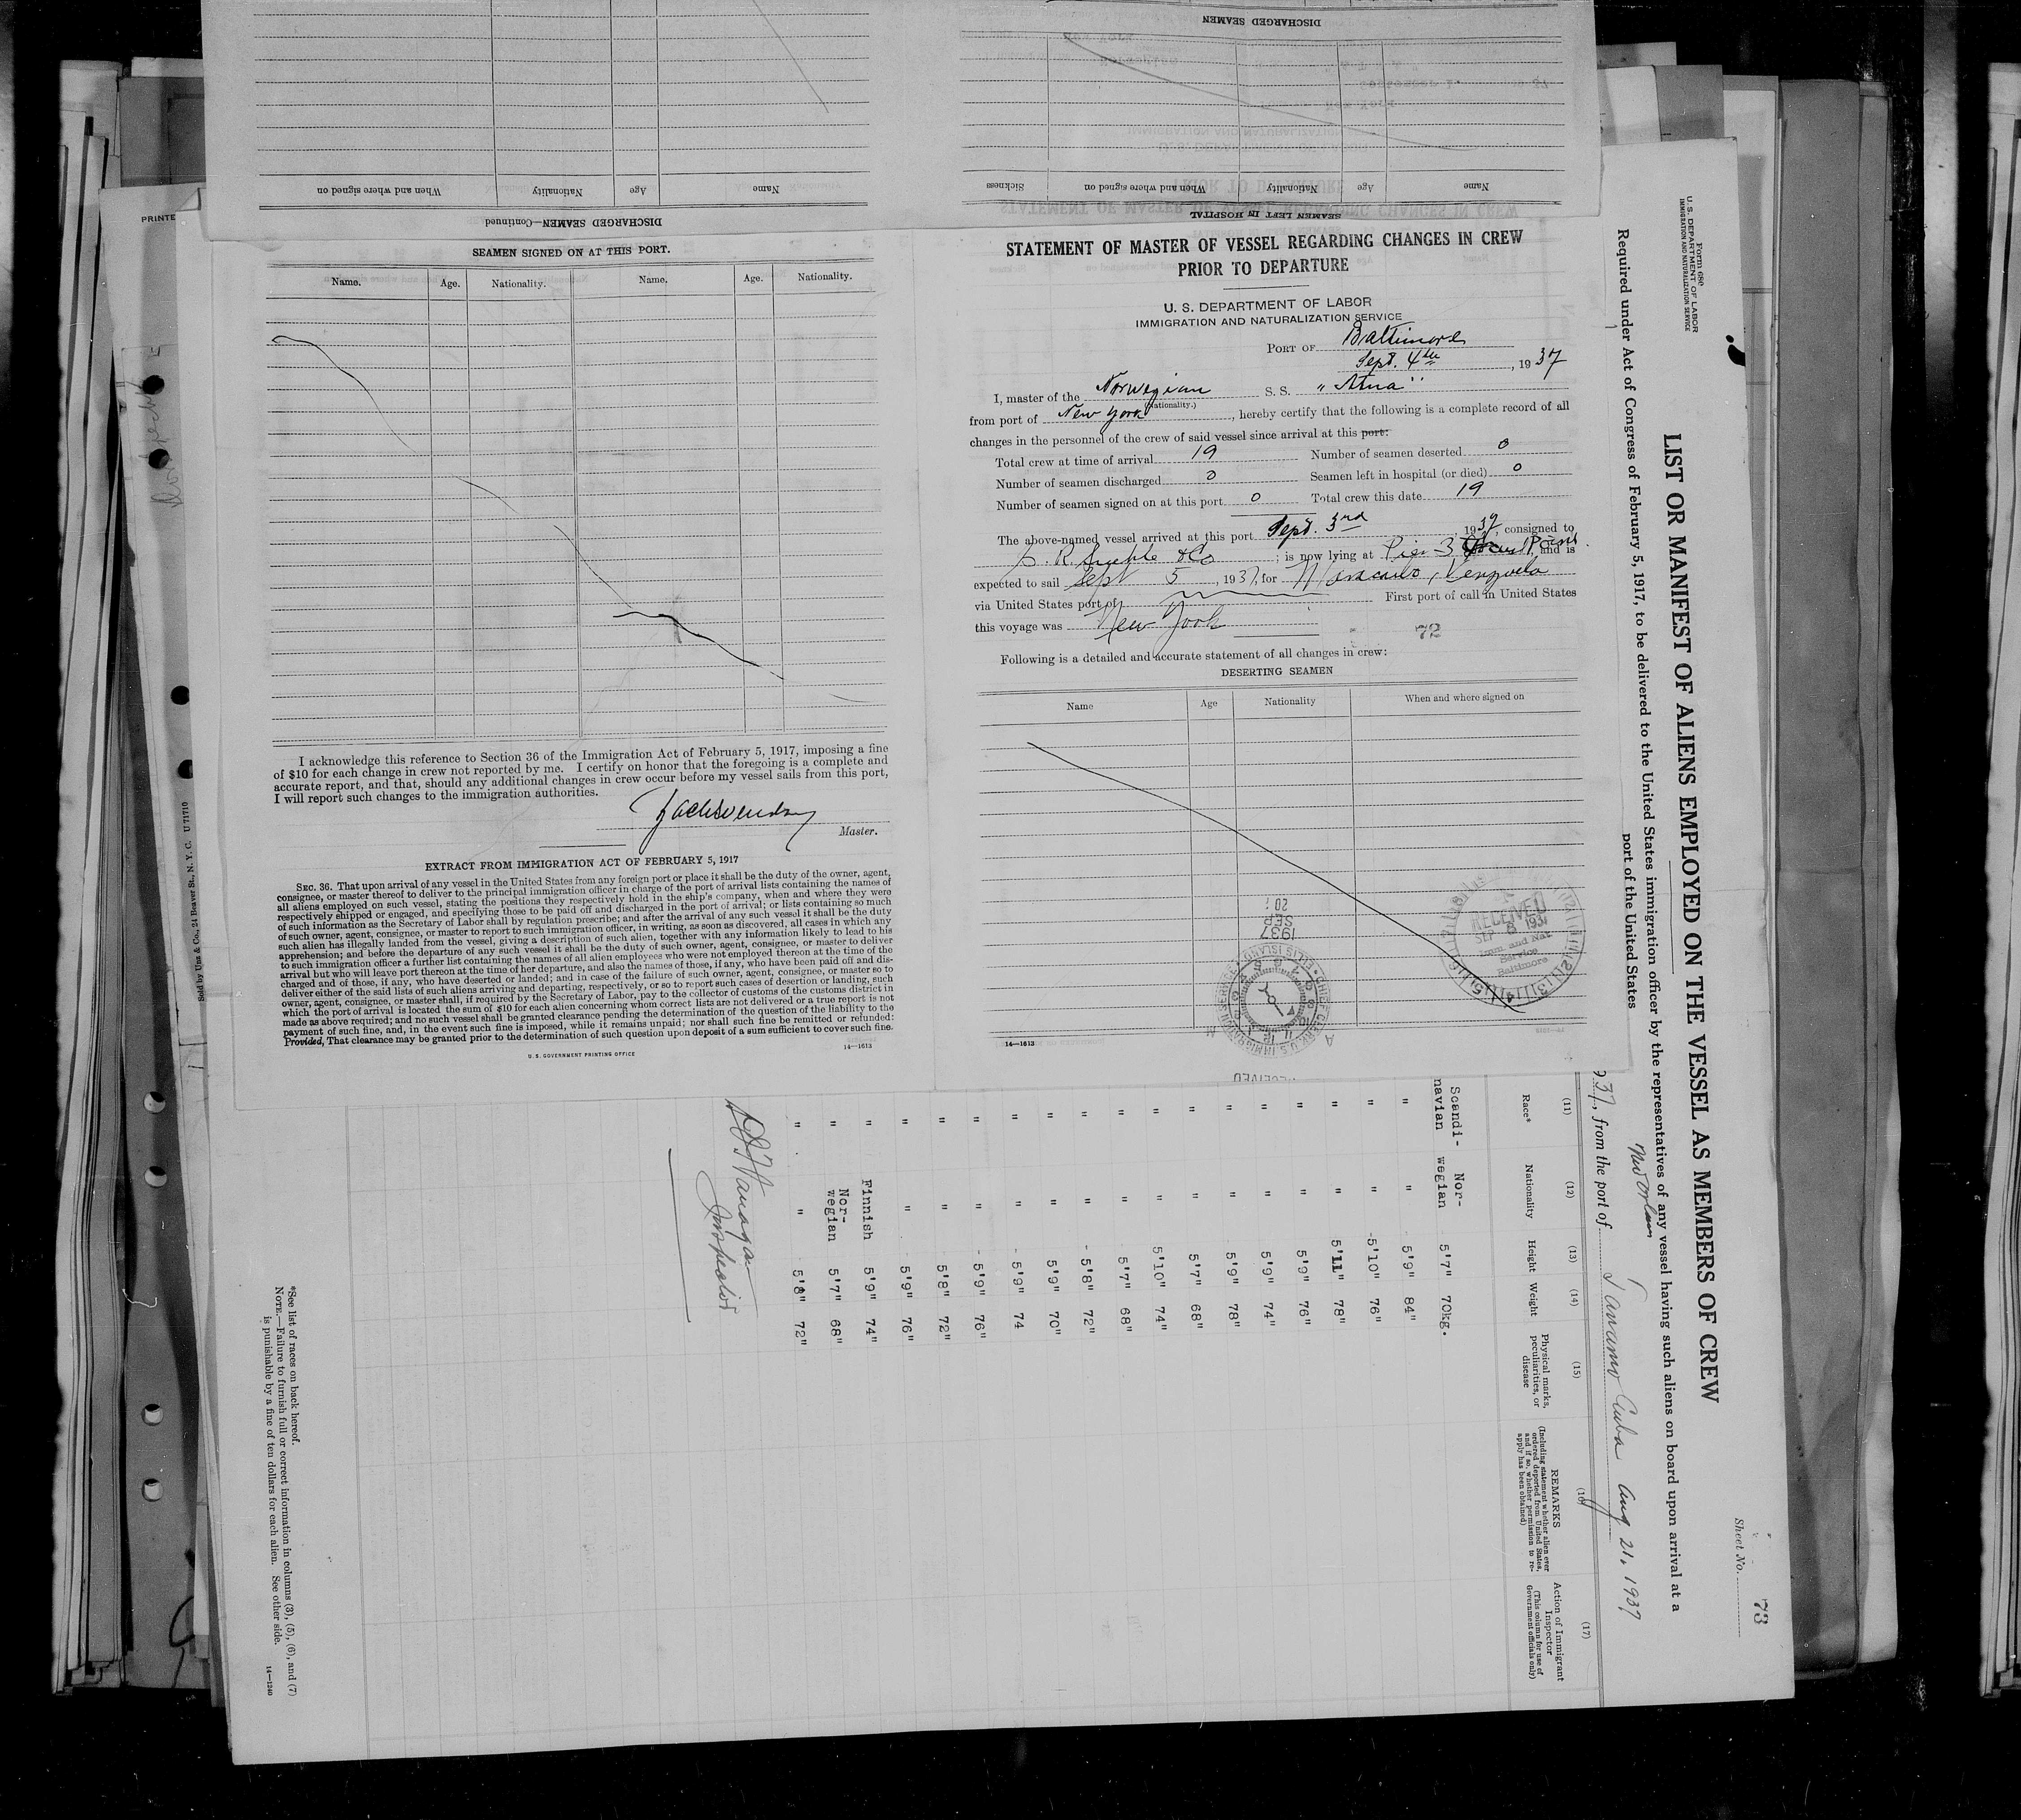 DISCHARGED SEAMEN
Name
Age
Nationality
When and where signed on
DISCHARGED SEAMEN—Continued
Name
Age
Nationality
When and where signed on
Sickness
SEAMEN LEFT IN HOSPITAL
SEAMEN SIGNED ON AT THIS PORT.
Name. Age. Nationality. Name. Age. Nationality.
I acknowledge this reference to Section 36 of the Immigration Act of February 5, 1917, imposing a fine
of $10 for each change in crew not reported by me. I certify on honor that the foregoing is a complete and
accurate report, and that, should any additional changes in crew occur before my vessel sails from this port,
I will report such changes to the immigration authorities.
Master.
EXTRACT FROM IMMIGRATION ACT OF FEBRUARY 5, 1917
SEC. 36. That upon arrival of any vessel in the United States from any foreign port or place it shall be the duty of the owner, agent,
consignee, or master thereof to deliver to the principal immigration officer in charge of the port of arrival lists containing the names of
all aliens employed on such vessel, stating the positions they respectively hold in the ship's company, when and where they were
respectively shipped or engaged, and specifying those to be paid off and discharged in the port of arrival; or lists containing so much
of such information as the Secretary of Labor shall by regulation prescribe; and after the arrival of any such vessel it shall be the duty
of such owner, agent, consignee, or master to report to such immigration officer, in writing, as soon as discovered, all cases in which any
such alien has illegally landed from the vessel, giving a description of such alien, together with any information likely to lead to his
apprehension; and before the departure of any such vessel it shall be the duty of such owner, agent, consignee, or master to deliver
to such immigration officer a further list containing the names of all alien employees who were not employed thereon at the time of the
arrival but who will leave port thereon at the time of her departure, and also the names of those, if any, who have been paid off and dis-
charged and of those, if any, who have deserted or landed; and in case of the failure of such owner, agent, consignee, or master so to
deliver either of the said lists of such aliens arriving and departing, respectively, or so to report such cases of desertion or landing, such
owner, agent, consignee, or master shall, if required by the Secretary of Labor, pay to the collector of customs of the customs district in
which the port of arrival is located the sum of $10 for each alien concerning whom correct lists are not delivered or a true report is not
made as above required; and no such vessel shall be granted clearance pending the determination of the question of the liability to the
payment of such fine, and, in the event such fine is imposed, while it remains unpaid; nor shall such fine be remitted or refunded:
Provided, That clearance may be granted prior to the determination of such question upon deposit of a sum sufficient to cover such fine.
U. S. GOVERNMENT PRINTING OFFICE 14—1613
STATEMENT OF MASTER OF VESSEL REGARDING CHANGES IN CREW
PRIOR TO DEPARTURE
U. S. DEPARTMENT OF LABOR
IMMIGRATION AND NATURALIZATION SERVICE
PORT OF Baltimore
Sept. 4th, 1937
I, master of the Norwegian S. S. "Atna"
(Nationality.)
from port of New York, hereby certify that the following is a complete record of all
changes in the personnel of the crew of said vessel since arrival at this port:
Total crew at time of arrival 19 Number of seamen deserted 0
Number of seamen discharged 0 Seamen left in hospital (or died) 0
Number of seamen signed on at this port 0 Total crew this date 19
The above-named vessel arrived at this port Sept. 3rd 1937, consigned to
& Co; is now lying at Pier 3 Point and is
expected to sail Sept 5, 1937, for Maracaibo, Venzuela
via United States port of First port of call in United States
this voyage was New York
72
Following is a detailed and accurate statement of all changes in crew:
DESERTING SEAMEN
Name Age Nationality When and where signed on
RECEIVED
SEP 8 1937
Immi. and Nat.
Service
Baltimore
1937
SEP
CHIEF CLERK U.S. IMMIGRATION SERVICE ELLIS ISLAND
RECEIVED
14—1613
Form 680
U. S. DEPARTMENT OF LABOR
IMMIGRATION AND NATURALIZATION SERVICE
Sheet No. 73
LIST OR MANIFEST OF ALIENS EMPLOYED ON THE VESSEL AS MEMBERS OF CREW
Required under Act of Congress of February 5, 1917, to be delivered to the United States immigration officer by the representatives of any vessel having such aliens on board upon arrival at a
port of the United States
New Orleans
937, from the port of Tanamo Cuba Aug 21, 1937
(11) (12) (13) (14) (15) (16) (17)
Race* Nationality Height Weight Physical marks, peculiarities, or disease REMARKS (Including statement whether alien ever ordered deported from United States, and if so, whether permission to re-apply has been obtained) Action of Immigrant Inspector (This column for use of Government officials only)
Scandi-navian Nor-wegian 5'7" 70kg.
" " 5'9" 84"
" " 5'10" 76"
" " 5'11" 78"
" " 5'9" 76"
" " 5'9" 74"
" " 5'9" 78"
" " 5'7" 68"
" " 5'10" 74"
" " 5'7" 68"
" " 5'8" 72"
" " 5'9" 70"
" " 5'9" 74
" " 5'9" 76"
" " 5'8" 72"
" " 5'9" 76"
" Finnish 5'9" 74"
" Nor-wegian 5'7" 68"
" " 5'8" 72"
Inspector
*See list of races on back hereof.
NOTE.—Failure to furnish full or correct information in columns (3), (5), (6), and (7)
is punishable by a fine of ten dollars for each alien. See other side. 14—1240
PRINTE
Sold by Unz & Co., 24 Beaver St., N. Y. C. U71710